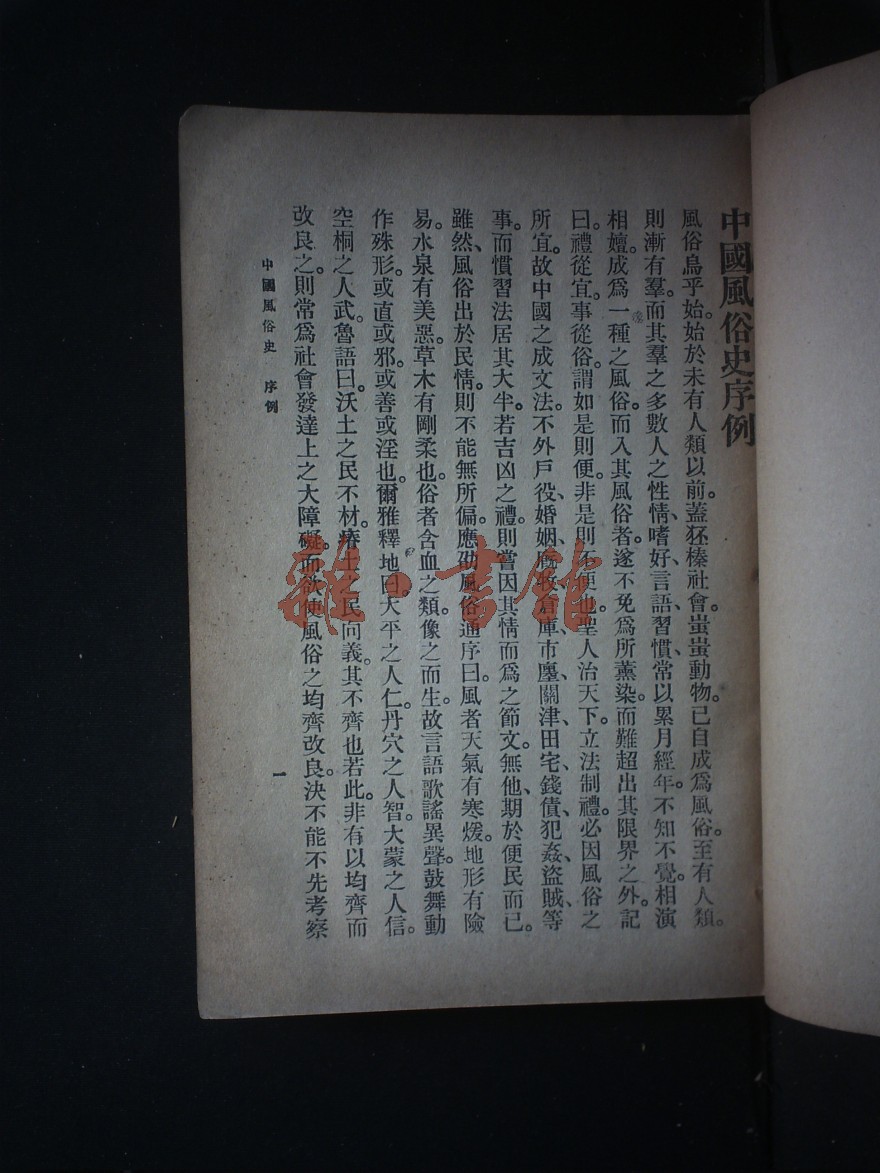 中國風俗史序例
風俗烏乎始。始於未有人類以前。蓋狉榛社會。蚩蚩動物。已自成爲風俗。至有人類。
則漸有羣。而其羣之多數人之性情、嗜好、言語、習慣、常以累月經年。不知不覺。相演
相嬗。成爲一種之風俗。而入其風俗者。遂不免爲所薰染。而難超出其限界之外。記
曰。禮從宜。事從俗。謂如是則便。非是則不便也。聖人治天下。立法制禮。必因風俗之
所宜。故中國之成文法。不外戶役、婚姻、廄牧、倉庫、市廛、關津、田宅、錢債、犯姦、盜賊、等
事。而慣習法居其大半。若吉凶之禮。則嘗因其情而爲之節文。無他。期於便民而已。
雖然、風俗出於民情。則不能無所偏。應劭風俗通序曰。風者天氣有寒煖。地形有險
易。水泉有美惡。草木有剛柔也。俗者含血之類。像之而生。故言語歌謠異聲。鼓舞動
作殊形。或直或邪。或善或淫也。爾雅釋地曰。大平之人仁。丹穴之人智。大蒙之人信。
空桐之人武。魯語曰。沃土之民不材。瘠土之民向義。其不齊也若此。非有以均齊而
改良之。則常爲社會發達上之大障礙。而欲使風俗之均齊改良。決不能不先考察
中國風俗史 序例
一
雜·書館